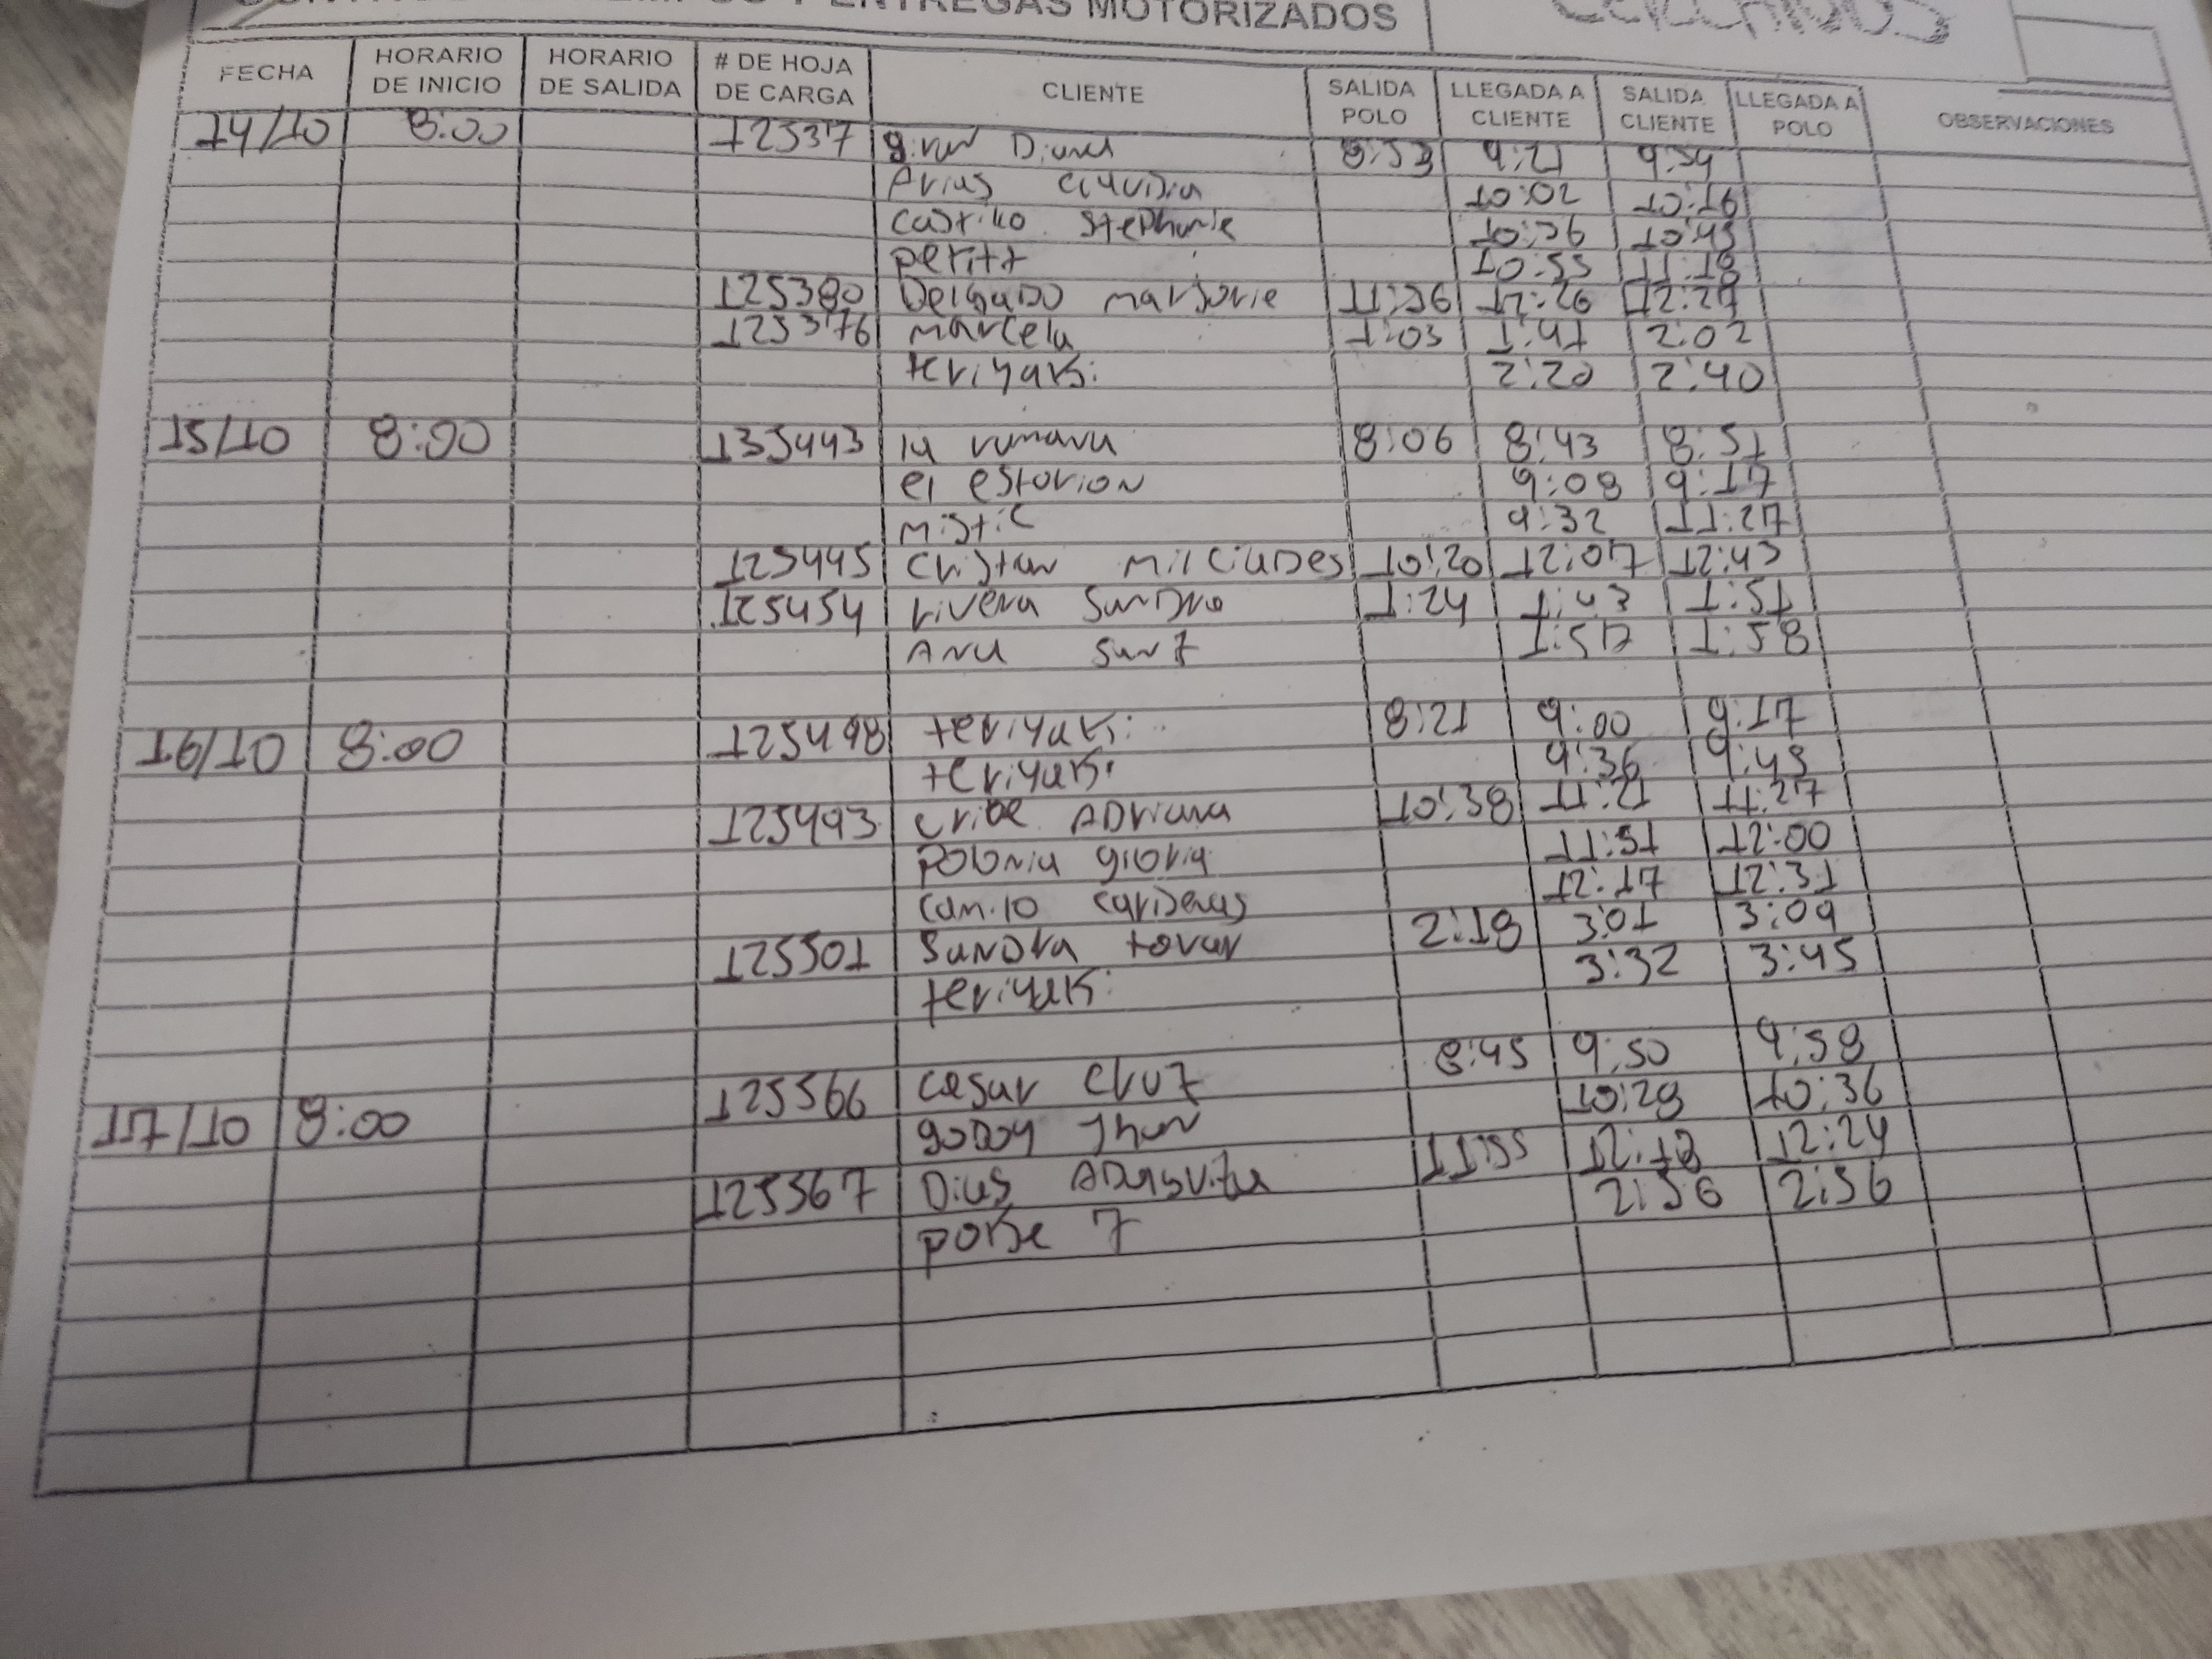 ENTREGAS MOTORIZADOS
FECHA HORARIO DE INICIO HORARIO DE SALIDA # DE HOJA DE CARGA CLIENTE SALIDA POLO LLEGADA A CLIENTE SALIDA CLIENTE LLEGADA A POLO OBSERVACIONES
14/10 8:00 12537 Diana 8:53 9:21 9:54
Arias claudia 10:02 10:19
castillo stephanie 10:26 10:43
petitt 10:55 11:18
125380 Delgado marjorie 11:56 12:26 12:27
125376 marcela 1:03 1:41 2:02
teriyaki 2:20 2:40
15/10 8:00 135443 la rumana 8:06 8:43 8:51
el estorion 9:08 9:17
mistic 9:32 11:27
125445 cristan milciades 10:20 12:07 12:43
125454 rivera sandro 1:24 1:43 1:51
Ana sanz 1:57 1:58
16/10 8:00 125498 teriyaki 8:21 9:00 9:17
teriyaki 9:36 9:45
125493 uribe Adriana 10:38 11:21 11:27
polonia gloria 11:51 12:00
camilo cardenas 12:17 12:31
125501 sandra tovar 2:18 3:01 3:09
teriyaki 3:32 3:45
17/10 8:00 125566 cesar cruz 8:45 9:50 9:58
godoy Jhon 10:28 10:36
125567 Dias 11:55 12:18 12:24
pokse 7 2:56 2:56